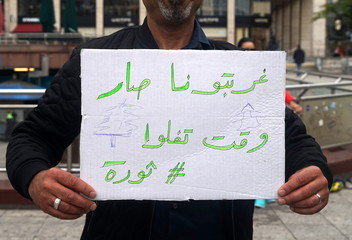 غربتونا صار
وقت تفلوا
# ثورة